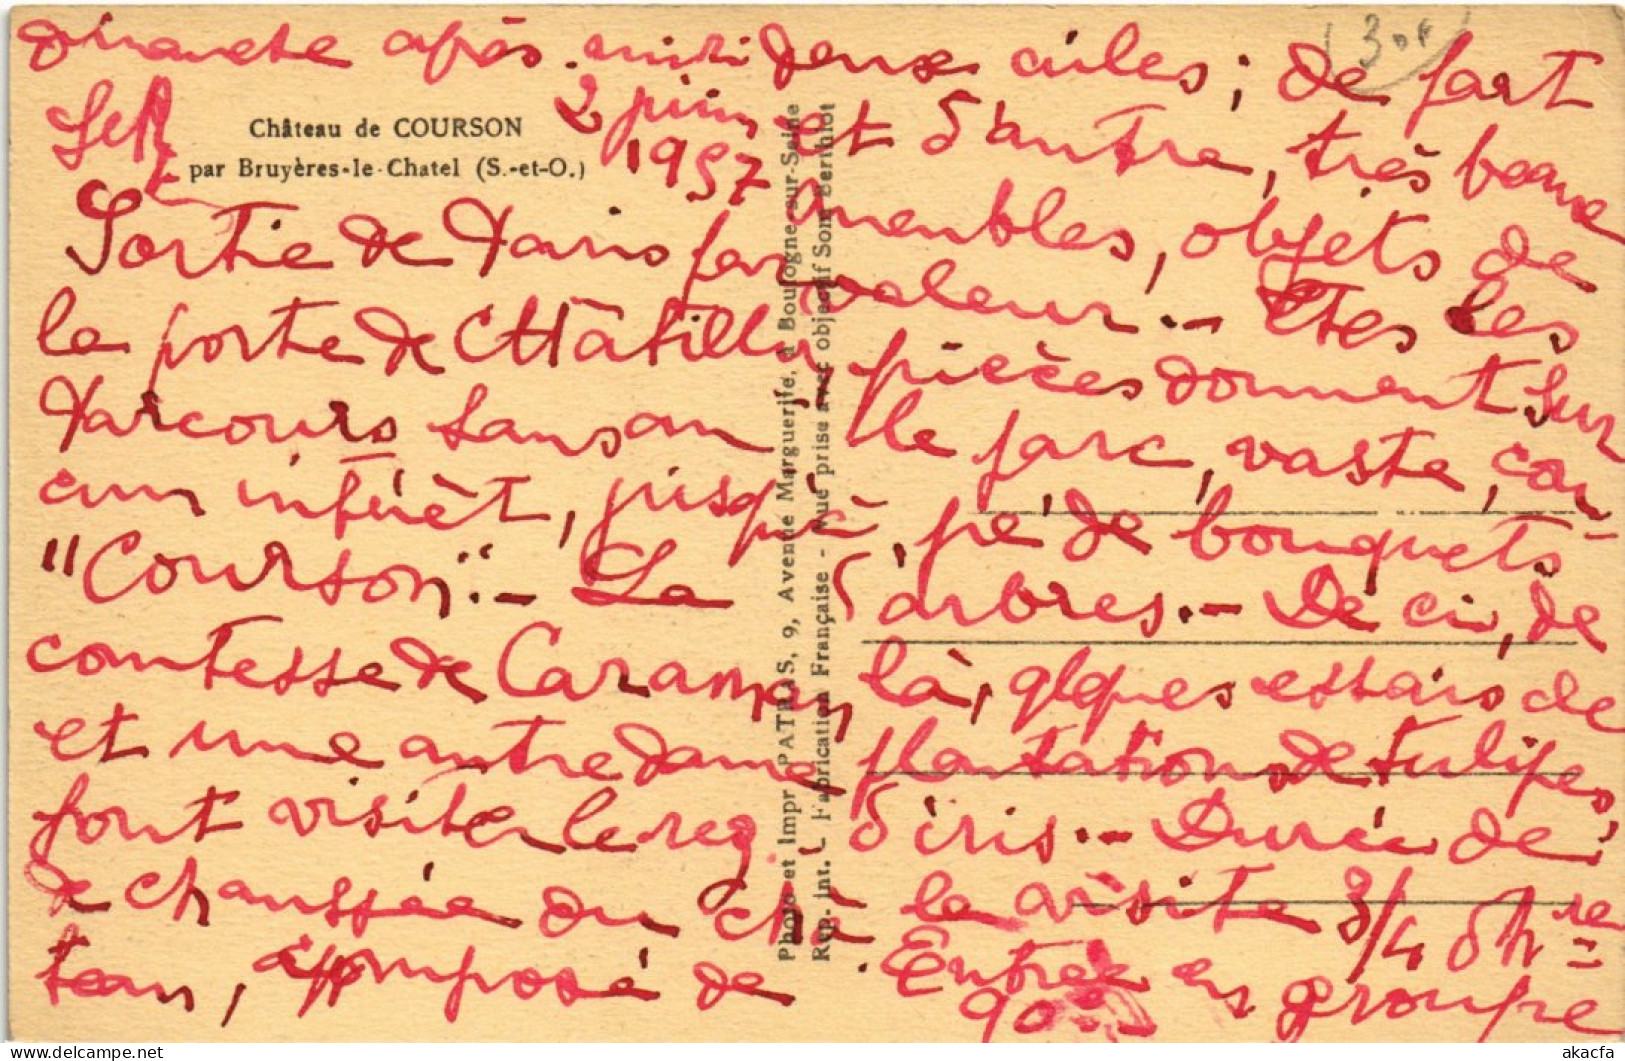 dimanche après-midi
2 juin
1957
Château de COURSON
par Bruyères-le-Chatel (S.-et-O.)
Sortie de Paris par
la porte de Châtillon
Parcours sans au
cun intérêt, jusqu'à
"Courson".- La
comtesse de Caraman
et une autre dame
font visiter le rez
de chaussée du châ
teau, composé de
deux ailes ; de part
et d'autre, très beaux
meubles, objets de
valeur.- Ttes les
pièces donnent sur
le parc, vaste, cou-
pé de bouquets
d'arbres.- De ci, de
là, qlques essais de
plantations de tulipes,
d'iris.- Durée de
la visite 3/4 d'hre
Entrée en groupe
90
30F
Photo et Impr. PATRAS, 9, Avenue Marguerite, à Boulogne-sur-Seine
Rep. Int. - Fabrication Française - Vue prise avec objectif Som Berthiot
akacfa